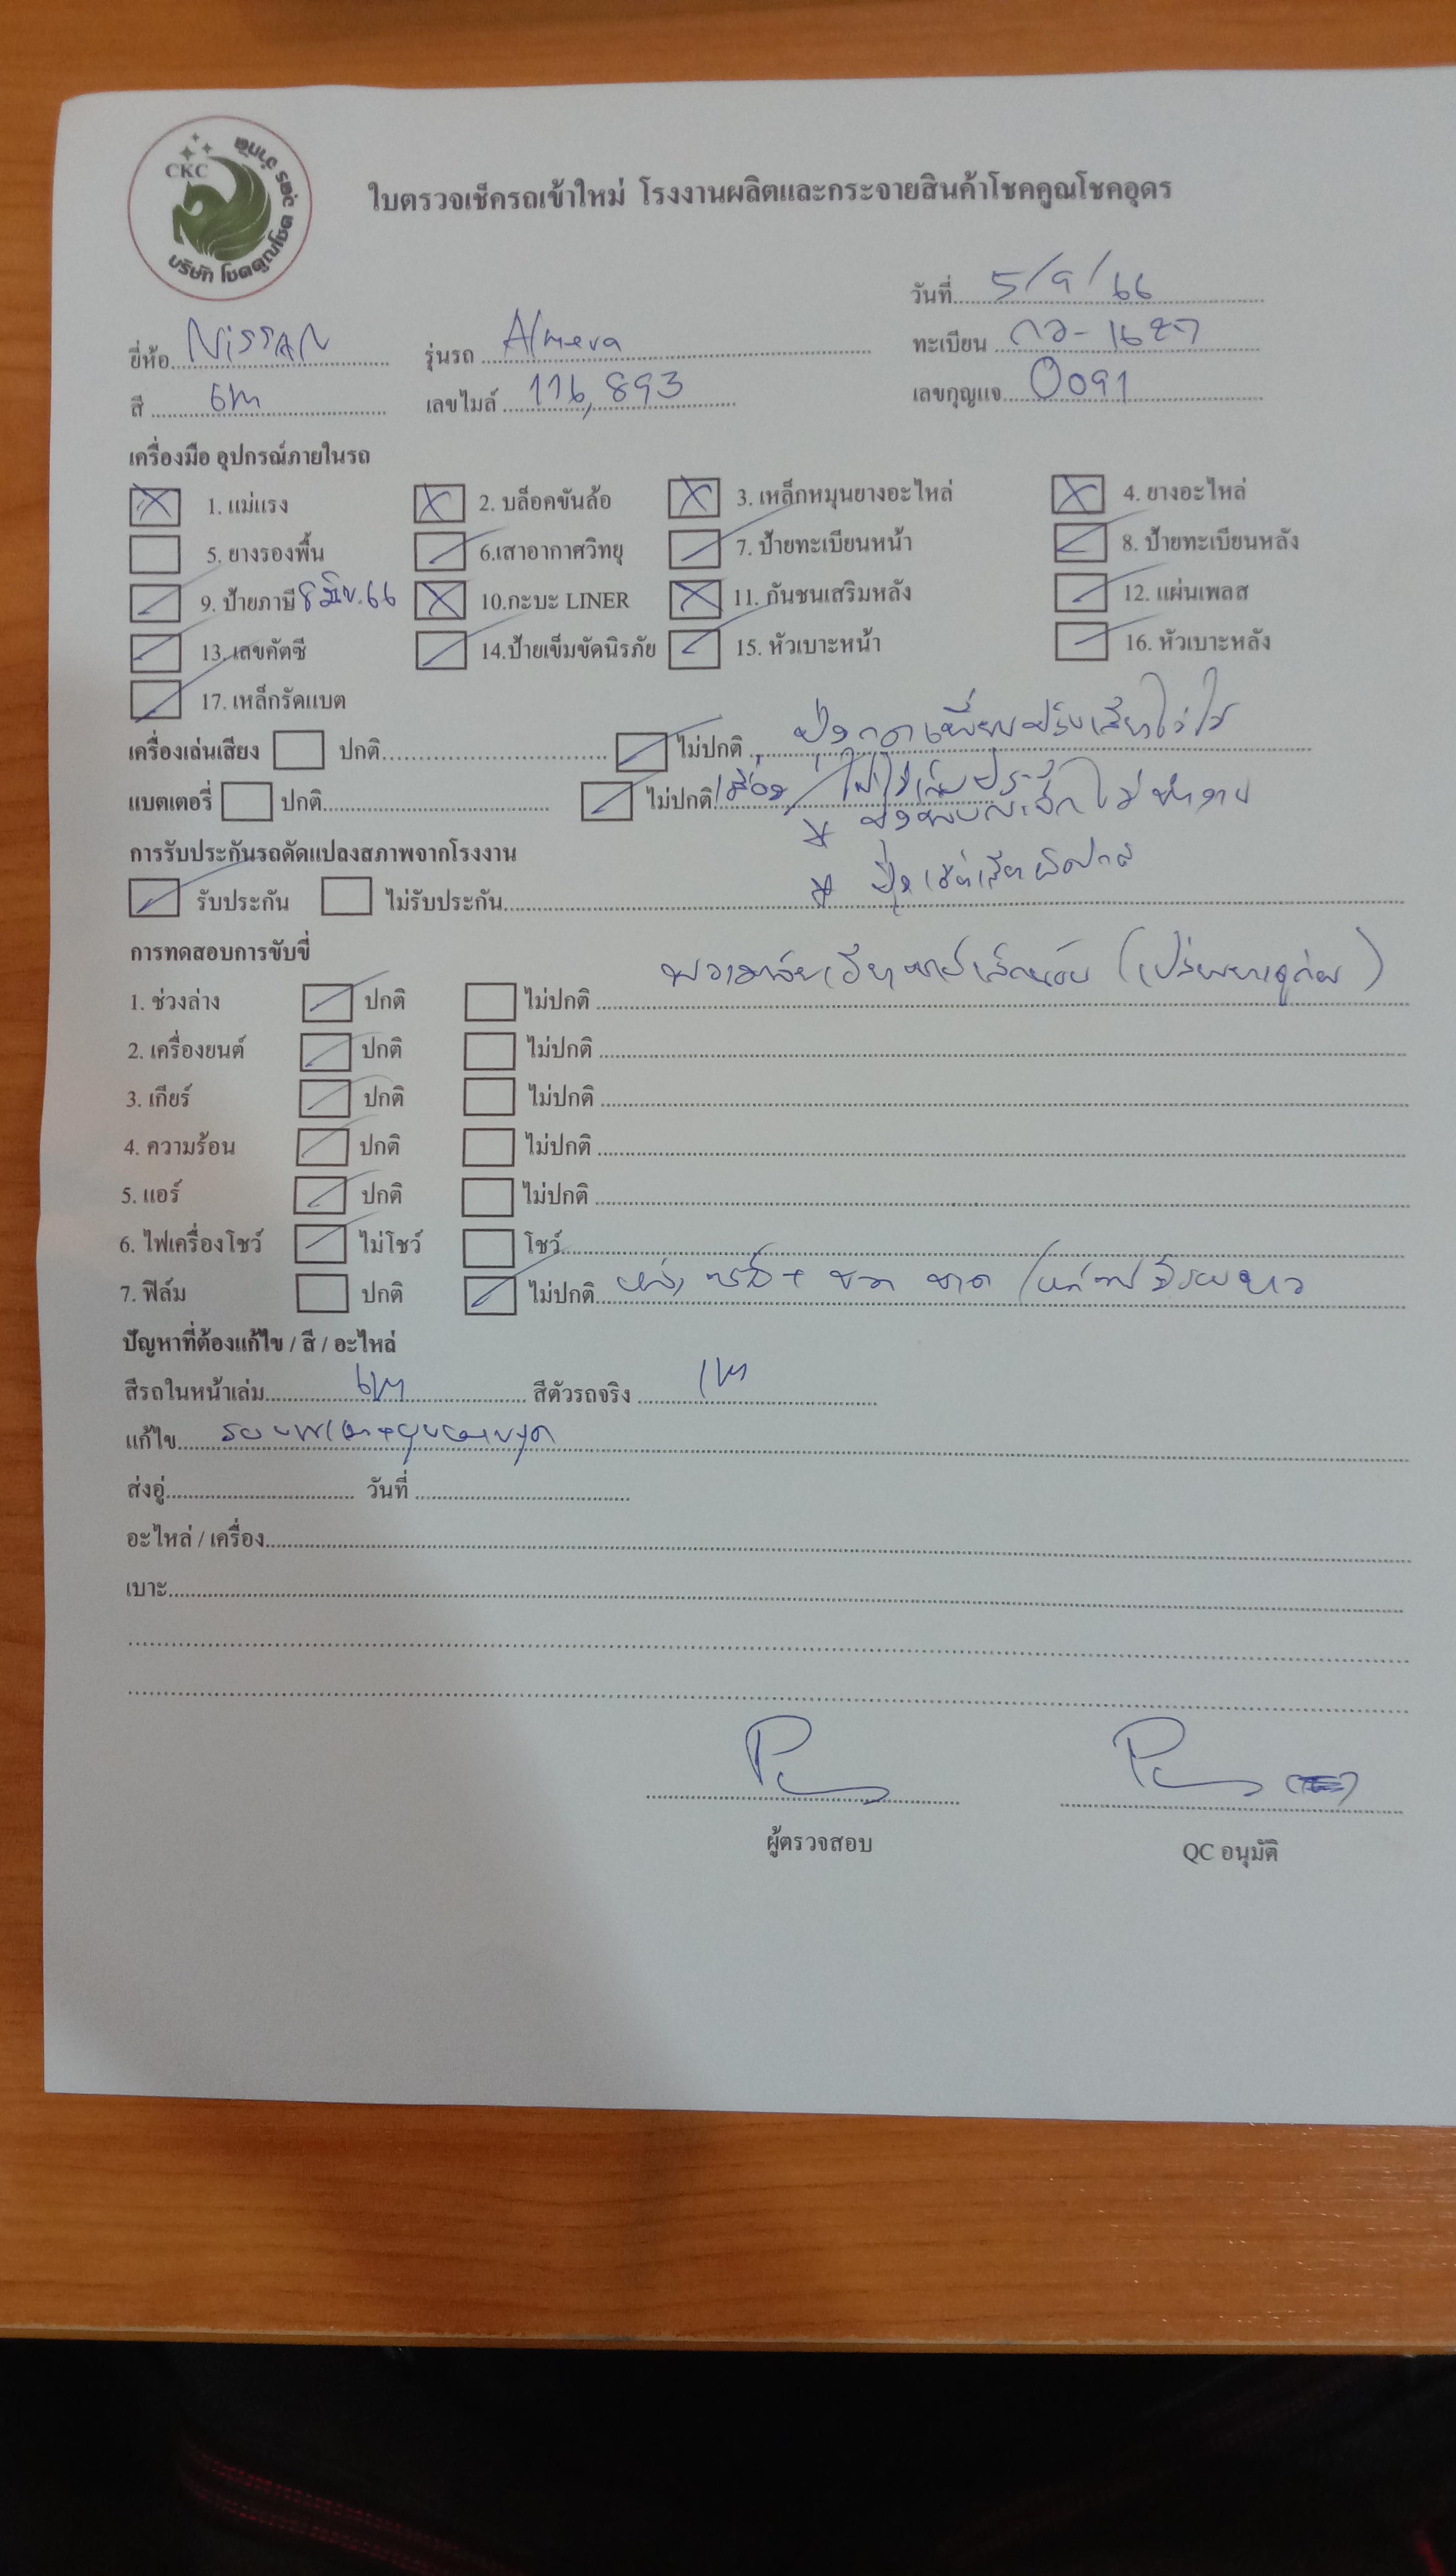 CKC
บริษัท โชคคูณโชค คูณ จำกัด
ใบตรวจเช็ครถเข้าใหม่ โรงงานผลิตและกระจายสินค้าโชคคูณโชคอุดร
วันที่ 5/9/66
ยี่ห้อ NISSAN รุ่นรถ Almera ทะเบียน
สี เทา เลขไมล์ 116,893 เลขกุญแจ 0091
เครื่องมือ อุปกรณ์ภายในรถ
1. แม่แรง 2. บล็อคขันล้อ 3. เหล็กหมุนยางอะไหล่ 4. ยางอะไหล่
5. ยางรองพื้น 6.เสาอากาศวิทยุ 7. ป้ายทะเบียนหน้า 8. ป้ายทะเบียนหลัง
9. ป้ายภาษี 8 มิย.66 10.กะบะ LINER 11. กันชนเสริมหลัง 12. แผ่นเพลส
13. เลขคัตซี 14.ป้ายเข็มขัดนิรภัย 15. หัวเบาะหน้า 16. หัวเบาะหลัง
17. เหล็กรัดแบต
เครื่องเล่นเสียง ปกติ ไม่ปกติ
แบตเตอรี่ ปกติ ไม่ปกติ
การรับประกันรถดัดแปลงสภาพจากโรงงาน
รับประกัน ไม่รับประกัน
การทดสอบการขับขี่
1. ช่วงล่าง ปกติ ไม่ปกติ
2. เครื่องยนต์ ปกติ ไม่ปกติ
3. เกียร์ ปกติ ไม่ปกติ
4. ความร้อน ปกติ ไม่ปกติ
5. แอร์ ปกติ ไม่ปกติ
6. ไฟเครื่องโชว์ ไม่โชว์ โชว์
7. ฟิล์ม ปกติ ไม่ปกติ
ปัญหาที่ต้องแก้ไข / สี / อะไหล่
สีรถในหน้าเล่ม เทา สีตัวรถจริง เทา
แก้ไข
ส่งอู่ วันที่
อะไหล่ / เครื่อง
เบาะ
ผู้ตรวจสอบ QC อนุมัติ